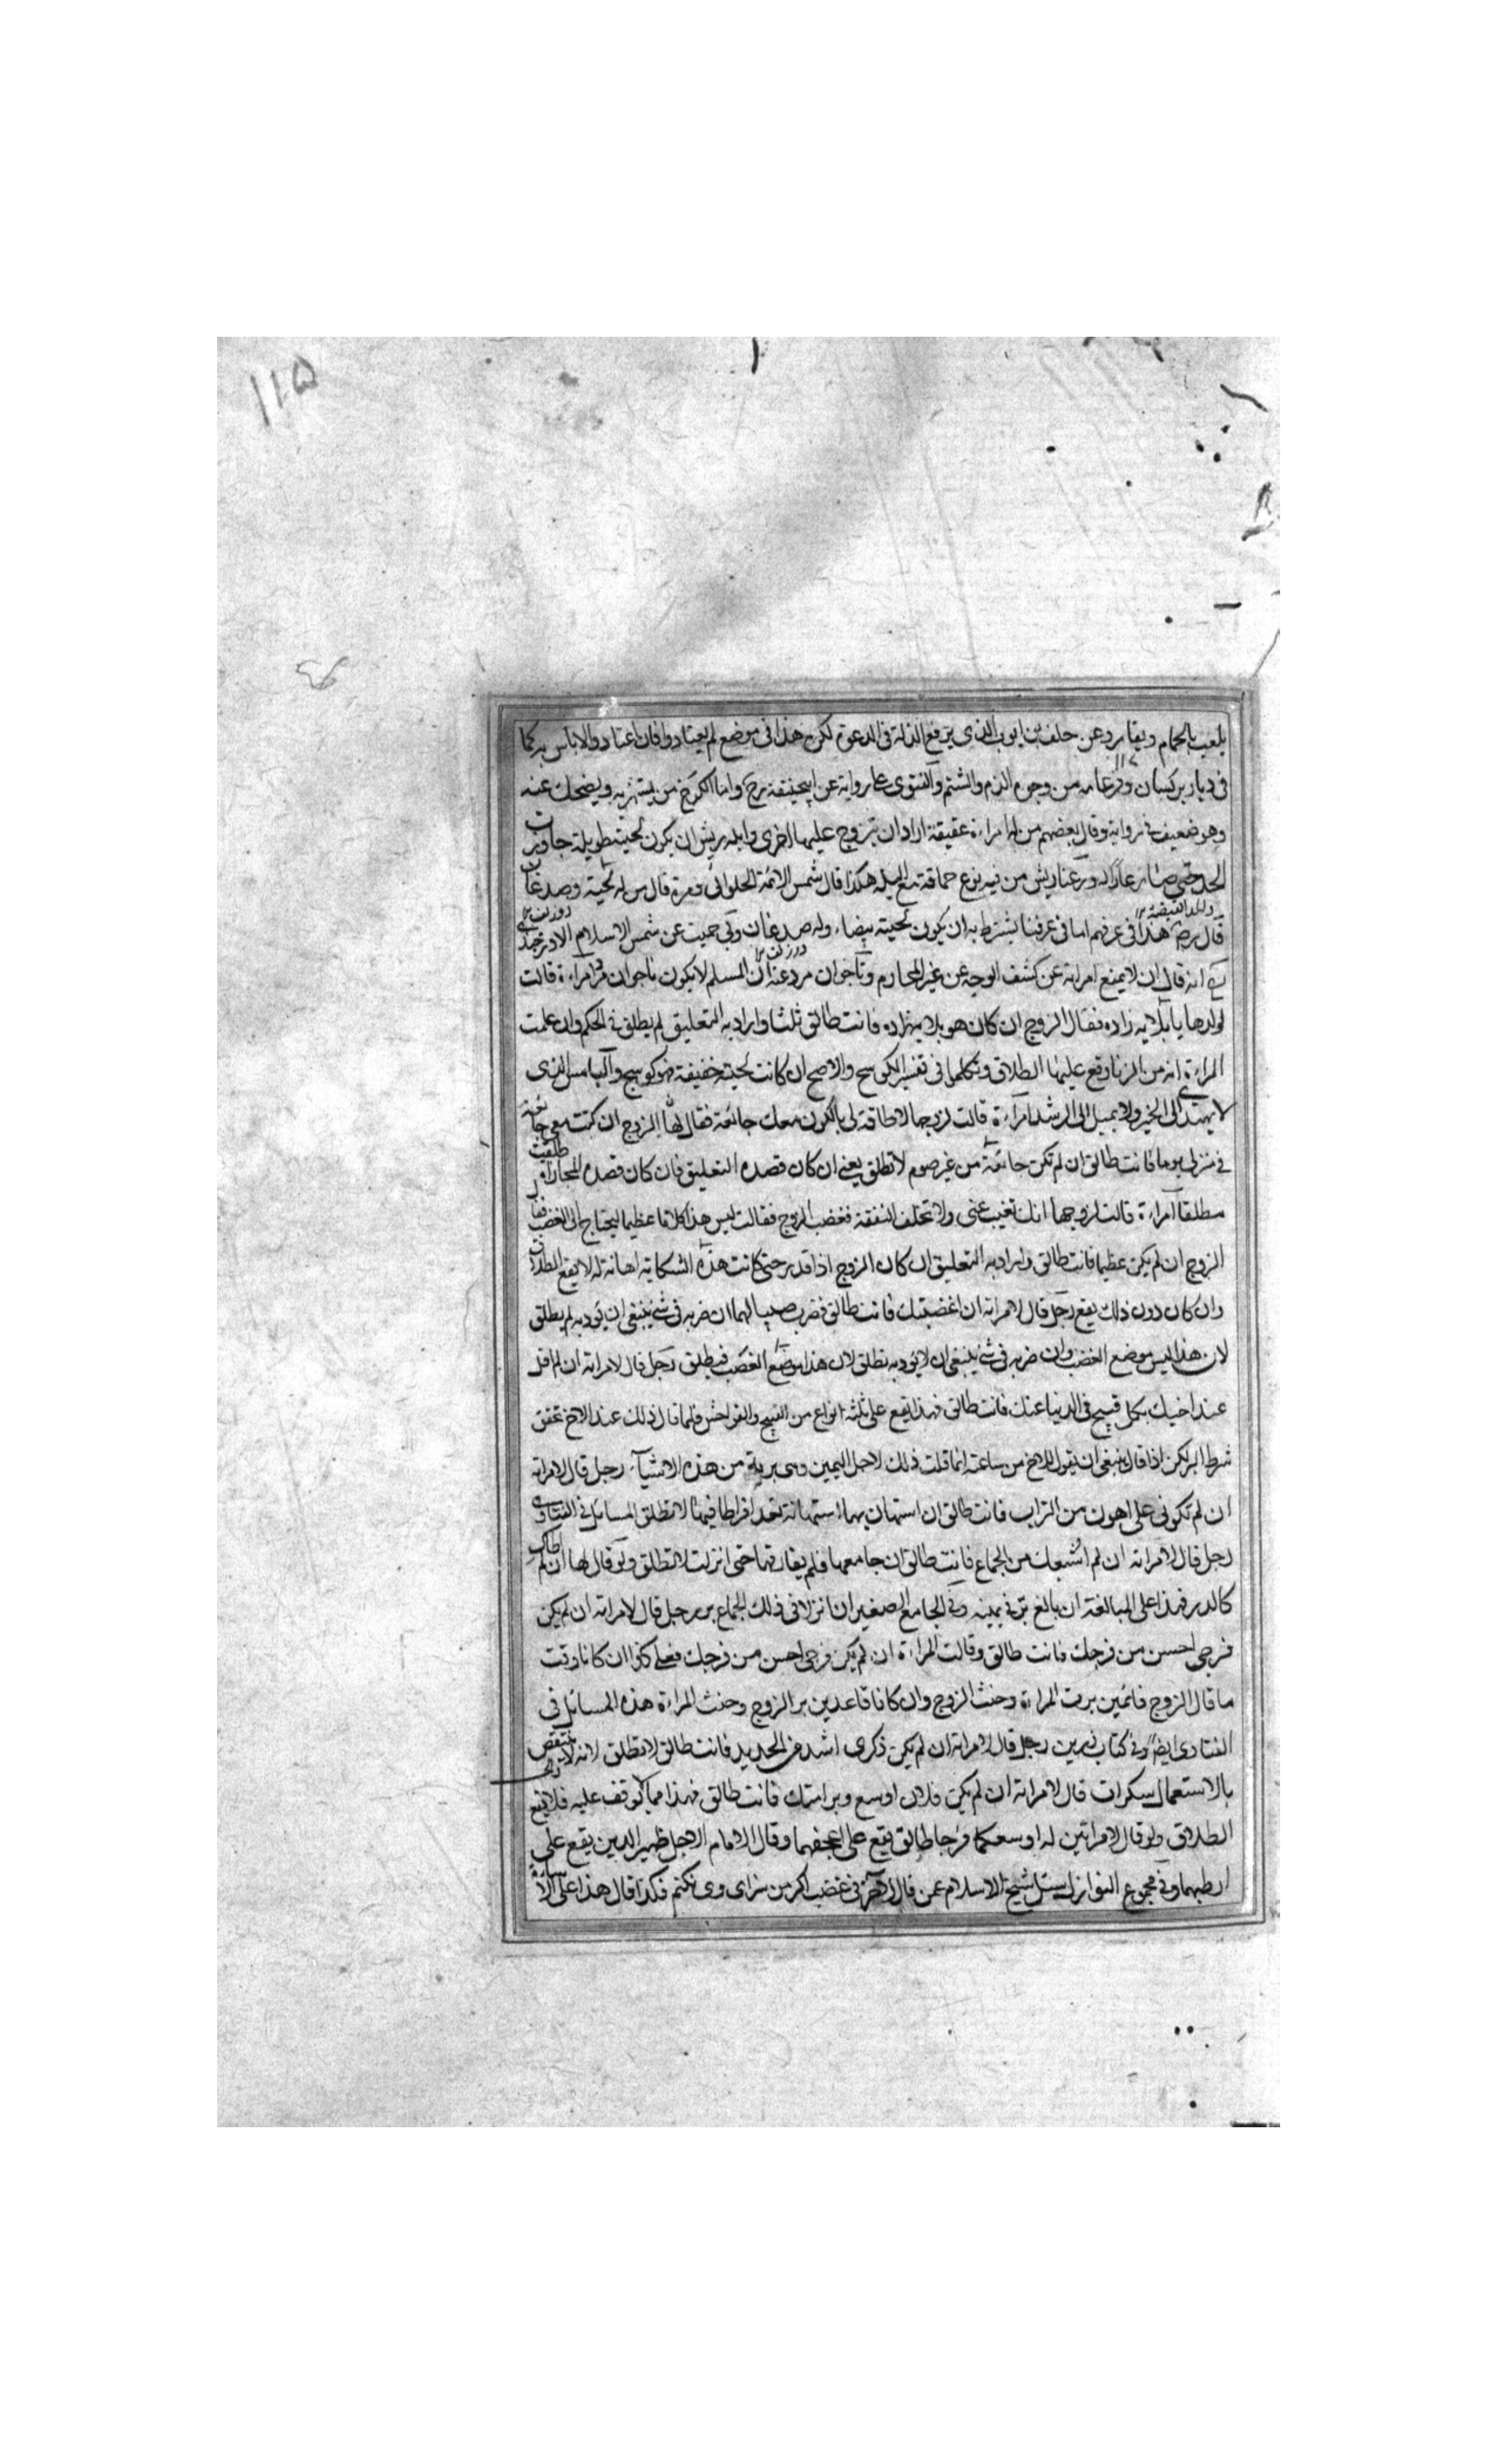 ١١٥
يلعب بالحمام ويقامر وعن خلف بن ايوب الذى يرفع الذلة فى الدعوة لكن هذا فى موضع لم يعتادوا فان اعتادوا لاباس به كما
فى ديار من وجوه الذم والشتم والفتوى على رواية عن ابيحنيفة رح واما من يستهزء به ويضحك عنه
وهو ضعيف فى رواية وقال بعضهم من له امراءة عفيفة اراد ان يتزوج عليها اخرى وابله ريش ان يكون لحيته طويلة جاوزت
الحد حتى صار عارا له من فيه نوع حماقة مع البله هكذا قال شمس الائمة الحلوائى ومرة قال من له لحية وصدغان
قال رض هذا فى عرفهم اما فى عرفنا يشترط به ان يكون لحيته بيضاء وله صدغان عن شمس الاسلام
انه قال ان لا يمنع امراته عن كشف الوجه عن غير المحارم ان المسلم لا يكون امراءة قالت
لولدها يا بلايه زاده فقال الزوج ان كان هو بلايه زاده فانت طالق ثلثا واراد به التعليق لم يطلق فى الحكم وان علمت
المراءة انه من الزنا وقع عليها الطلاق وتكلموا فى تفسير الكوسج والاصح ان كانت لحيته خفيفة فهو كوسج الذى
لا يهتدى الى الخير ولا يميل الى الرشد امراءة قالت لزوجها لا طاقة لى بالكون معك جائعة فقال لها الزوج ان كنت معى جائعة
فى منزلى يوما فانت طالق ان لم تكن جائعة من غير صوم لا تطلق يعنى ان كان قصده التعليق فان كان قصده المجازاة طلقت
مطلقا امراءة قالت لزوجها انك تغيب عنى ولا تخلف النفقة فغضب الزوج فقالت ليس هذا كلاما عظيما ليحتاج الى الغضب فقال
الزوج ان لم يكن عظيما فانت طالق واراد به التعليق ان كان الزوج اذا قدر حتى كانت هذه الشكاية اهانة له لا يقع الطلاق
وان كان دون ذلك يقع رجل قال لامراته ان اغضبتك فانت طالق فضرب صبيا لها ان ضربه فى شئ ينبغى ان يؤدبه لم يطلق
لان هذا ليس موضع الغضب وان ضربه فى شئ ينبغى ان لا يؤدبه تطلق لان هذا موضع الغضب فيطلق رجل قال لامراته ان لم اقل
عند اخيك بكل قبيح فى الدنيا عنك فانت طالق فهذا يقع على ثلثة انواع من القبيح والفواحش فلما قال ذلك عند الاخ تحقق
شرط البر لكن اذا قال ينبغى ان يقول للاخ من ساعته انما قلت ذلك لاجل اليمين وهى برية من هذه الاشيآء رجل قال لامراته
ان لم تكونى على اهون من التراب فانت طالق ان استهان بها استهانة تعد افراطا فيها لا تطلق المسائل فى الفتاوى
رجل قال لامراته ان لم اشبعك من الجماع فانت طالق ان جامعها فلم يفارقها حتى انزلت لا تطلق ولو قال لها ان لم اطاك
كالدر فهذا على المبالغة ان بالغ بر فى يمينه وفى الجامع الصغير ان انزلا فى ذلك الجماع بر رجل قال لامراته ان لم يكن
فرجى احسن من فرجك فانت طالق وقالت المراءة ان لم يكن فرجى احسن من فرجك فعلى كذا ان كانا وقت
ما قال الزوج قائمين برت المراءة وحنث الزوج وان كانا قاعدين بر الزوج وحنث المراءة هذه المسائل فى
الفتاوى ايضا وفى كتاب رجل قال لامراته ان لم يكن ذكرى اشد من الحديد فانت طالق لا تطلق لانه لا ينتقص
بالاستعمال سكران قال لامراته ان لم يكن فلان اوسع دبرا منك فانت طالق فهذا مما لا يوقف عليه فلا يقع
الطلاق ولو قال لامراتين له اوسعكما فرجا طالق يقع على اعجفهما وقال الامام الاجل ظهير الدين يقع على
ارطبهما وفى مجموع النوازل سئل شيخ الاسلام عمن قال لاخر فى غضب اكر من سزاى وى نكنم فكذا قال هذا على